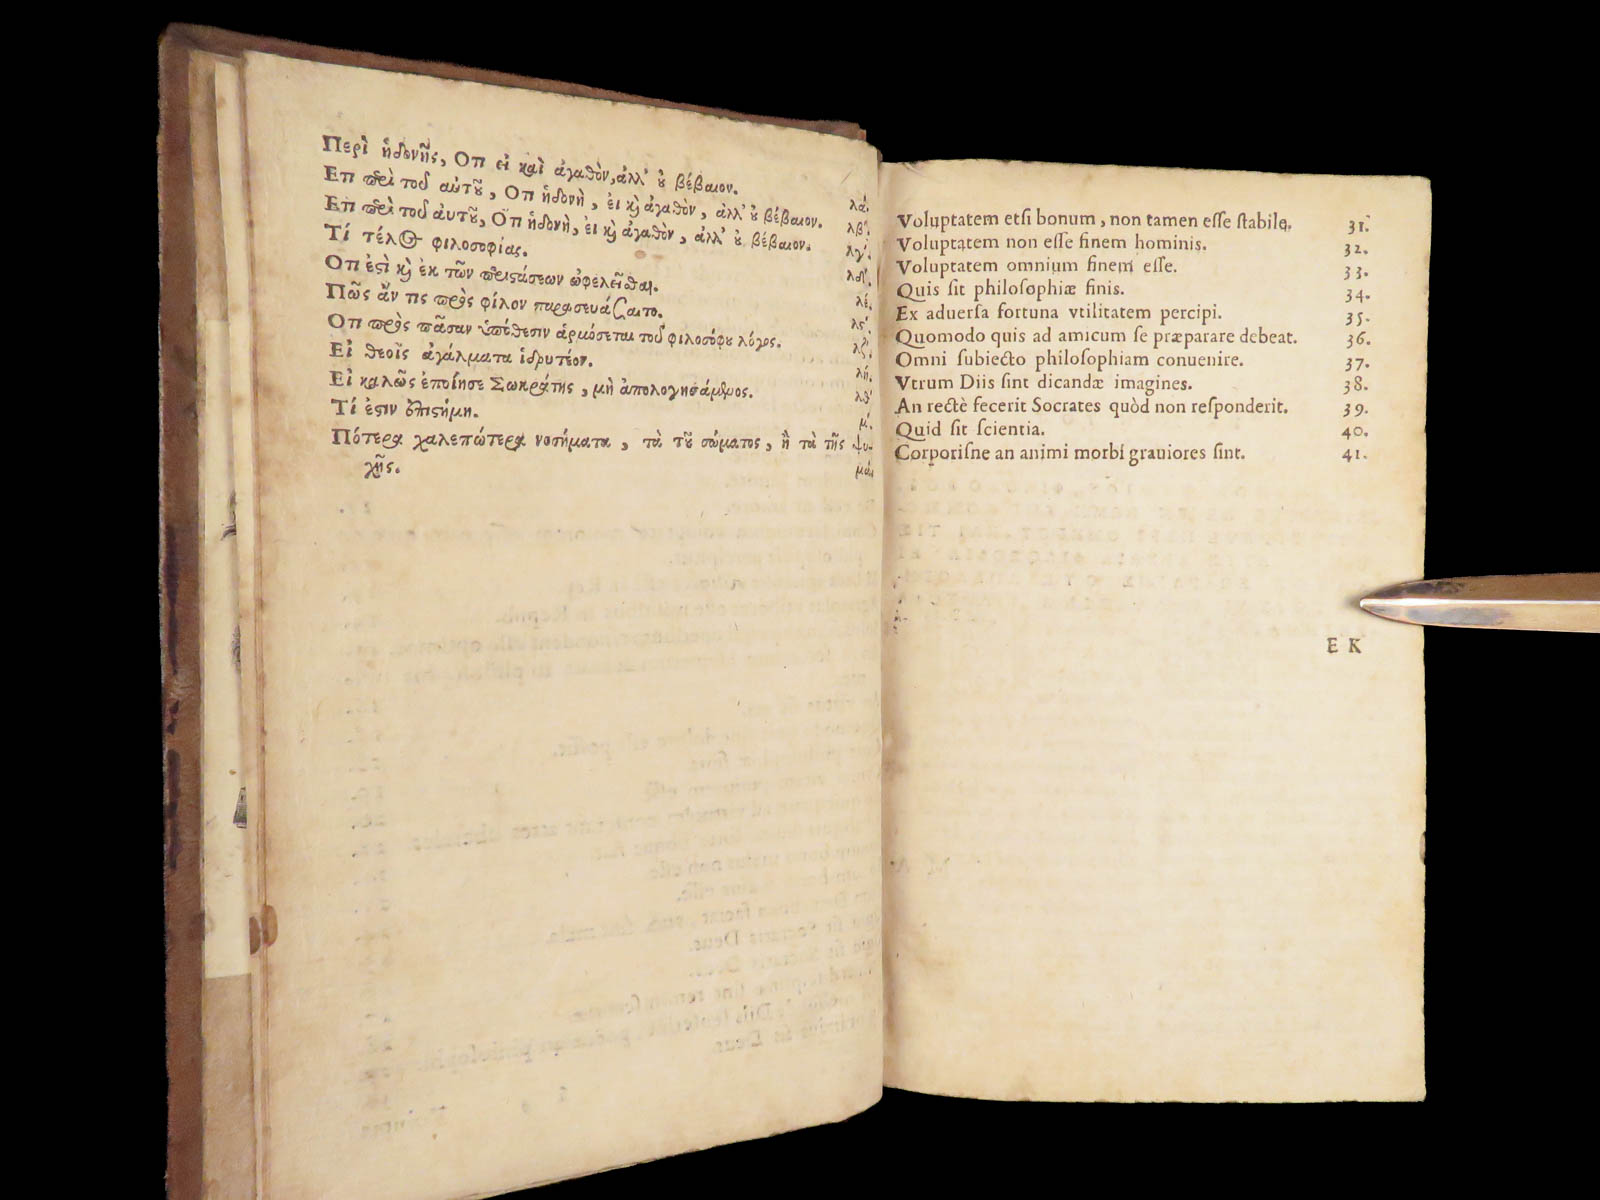 Περὶ ἡδονῆς, Ὅτι εἰ καὶ ἀγαθὸν, ἀλλ' οὐ βέβαιον. λα΄.
Ἔτι περὶ τοῦ αὐτοῦ, Ὅτι ἡδονὴ, εἰ καὶ ἀγαθὸν, ἀλλ' οὐ βέβαιον. λβ΄.
Ἔτι περὶ τοῦ αὐτοῦ, Ὅτι ἡδονὴ, εἰ καὶ ἀγαθὸν, ἀλλ' οὐ βέβαιον. λγ΄.
Τί τέλος φιλοσοφίας. λδ΄.
Ὅτι ἐστὶ καὶ ἐκ τῶν περιστάσεων ὠφελεῖσθαι. λέ.
Πῶς ἄν τις πρὸς φίλον παρασκευάζοιτο. λς΄.
Ὅτι πρὸς πᾶσαν ὑπόθεσιν ἁρμόσεται τοῦ φιλοσόφου λόγος. λζ΄.
Εἰ θεοῖς ἀγάλματα ἱδρυτέον. λή.
Εἰ καλῶς ἐποίησε Σωκράτης, μὴ ἀπολογησάμενος. λθ΄
Τί ἐστιν ἐπιστήμη. μ΄.
Πότερα χαλεπώτερα νοσήματα, τὰ τοῦ σώματος, ἢ τὰ τῆς ψυ-
χῆς. μά.
Voluptatem etsi bonum, non tamen esse stabile. 31.
Voluptatem non esse finem hominis. 32.
Voluptatem omnium finem esse. 33.
Quis sit philosophiæ finis. 34.
Ex aduersa fortuna vtilitatem percipi. 35.
Quomodo quis ad amicum se præparare debeat. 36.
Omni subiecto philosophiam conuenire. 37.
Vtrum Diis sint dicandæ imagines. 38.
An rectè fecerit Socrates quòd non responderit. 39.
Quid sit scientia. 40.
Corporisne an animi morbi grauiores sint. 41.
E K